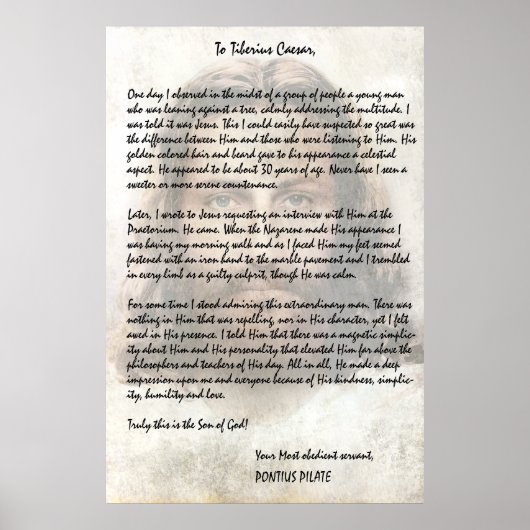 To Tiberius Caesar,
One day I observed in the midst of a group of people a young man
who was leaning against a tree, calmly addressing the multitude. I
was told it was Jesus. This I could easily have suspected so great was
the difference between Him and those who were listening to Him. His
golden colored hair and beard gave to his appearance a celestial
aspect. He appeared to be about 30 years of age. Never have I seen a
sweeter or more serene countenance.
Later, I wrote to Jesus requesting an interview with Him at the
Praetorium. He came. When the Nazarene made His appearance I
was having my morning walk and as I faced Him my feet seemed
fastened with an iron hand to the marble pavement and I trembled
in every limb as a guilty culprit, though He was calm.
For some time I stood admiring this extraordinary man. There was
nothing in Him that was repelling, nor in His character, yet I felt
awed in His presence. I told Him that there was a magnetic simplic-
ity about Him and His personality that elevated Him far above the
philosophers and teachers of His day. All in all, He made a deep
impression upon me and everyone because of His kindness, simplic-
ity, humility and love.
Truly this is the Son of God!
Your Most obedient servant,
PONTIUS PILATE